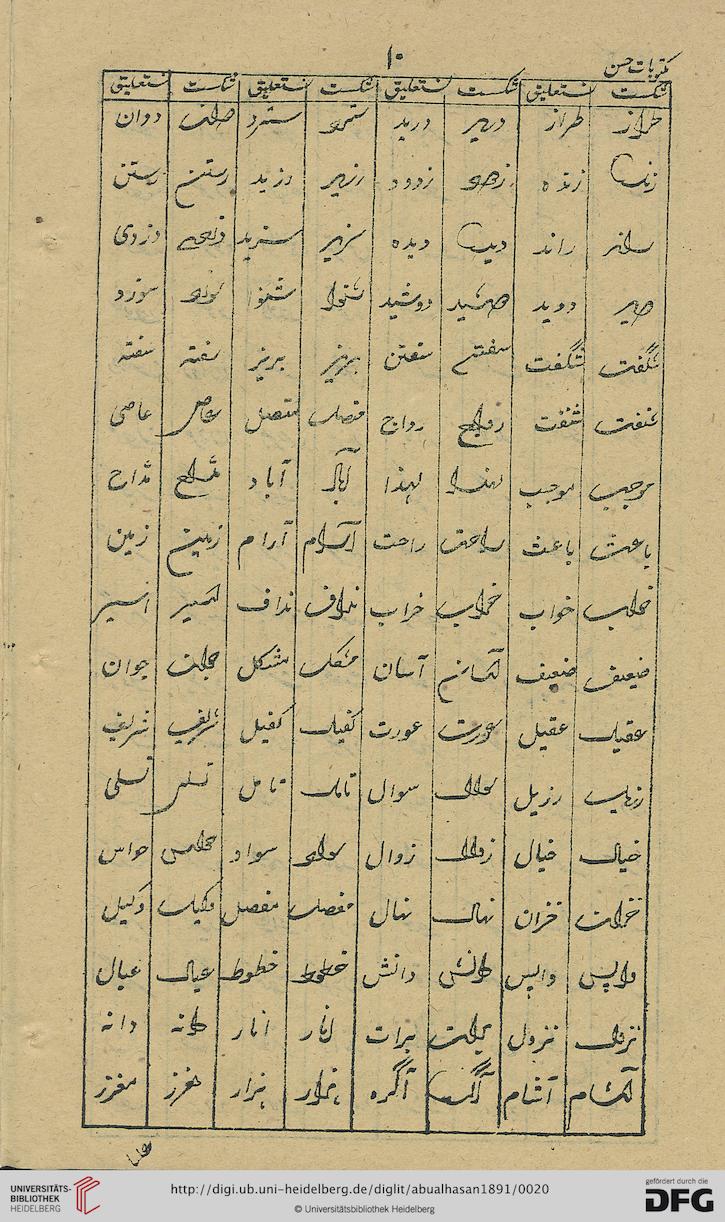 ۱۰
مکتوبات حسن
شکست نستعلیق شکست نستعلیق شکست نستعلیق شکست نستعلیق
طراز طراز درید درید سترد سترد دوان دوان
زنده زنده زدود زدود رزید رزید رستن رستن
راند راند دیده دیده ستزید ستزید دزدی دزدی
دوید دوید دوشید دوشید شنوا شنوا سوزد سوزد
شگفت شگفت سفتن سفتن بریز بریز سفته سفته
شفقت شفقت رواج رواج متصل متصل عاصی عاصی
موجب موجب لہذا لہذا آباد آباد مداح مداح
باعث باعث راحت راحت آرام آرام زمین زمین
خواب خواب خراب خراب نداف نداف اکسیر اکسیر
ضعیف ضعیف آسان آسان مشکل مشکل جوان جوان
عقیل عقیل عورت عورت کفیل کفیل شریف شریف
رزیل رزیل سوال سوال تامل تامل تسلی تسلی
خیال خیال زوال زوال سواد سواد حواس حواس
خزان خزان نہال نہال مفصل مفصل وکیل وکیل
واپس واپس دانش دانش خطوط خطوط عیال عیال
نزول نزول برات برات انار انار دانه دانه
آشام آشام آگره آگره ہزار ہزار مغرز مغرز
UNIVERSITÄTS-
BIBLIOTHEK
HEIDELBERG
http://digi.ub.uni-heidelberg.de/diglit/abualhasan1891/0020
© Universitätsbibliothek Heidelberg
gefördert durch die
DFG